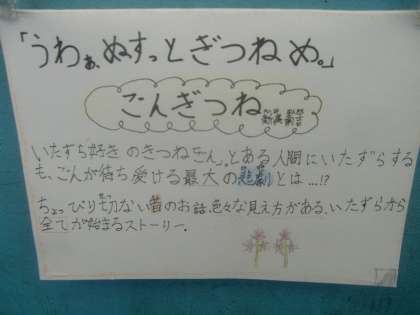 「うわぁ、ぬすっとぎつねめ。」
ごんぎつね 新美南吉
いたずら好きのきつねごん。とある人間にいたずらする
も、ごんが待ち受ける最大の悲劇とは…!?
ちょっぴり切ない昔のお話、色々な見え方がある、いたずらから
全てが始まるストーリー.